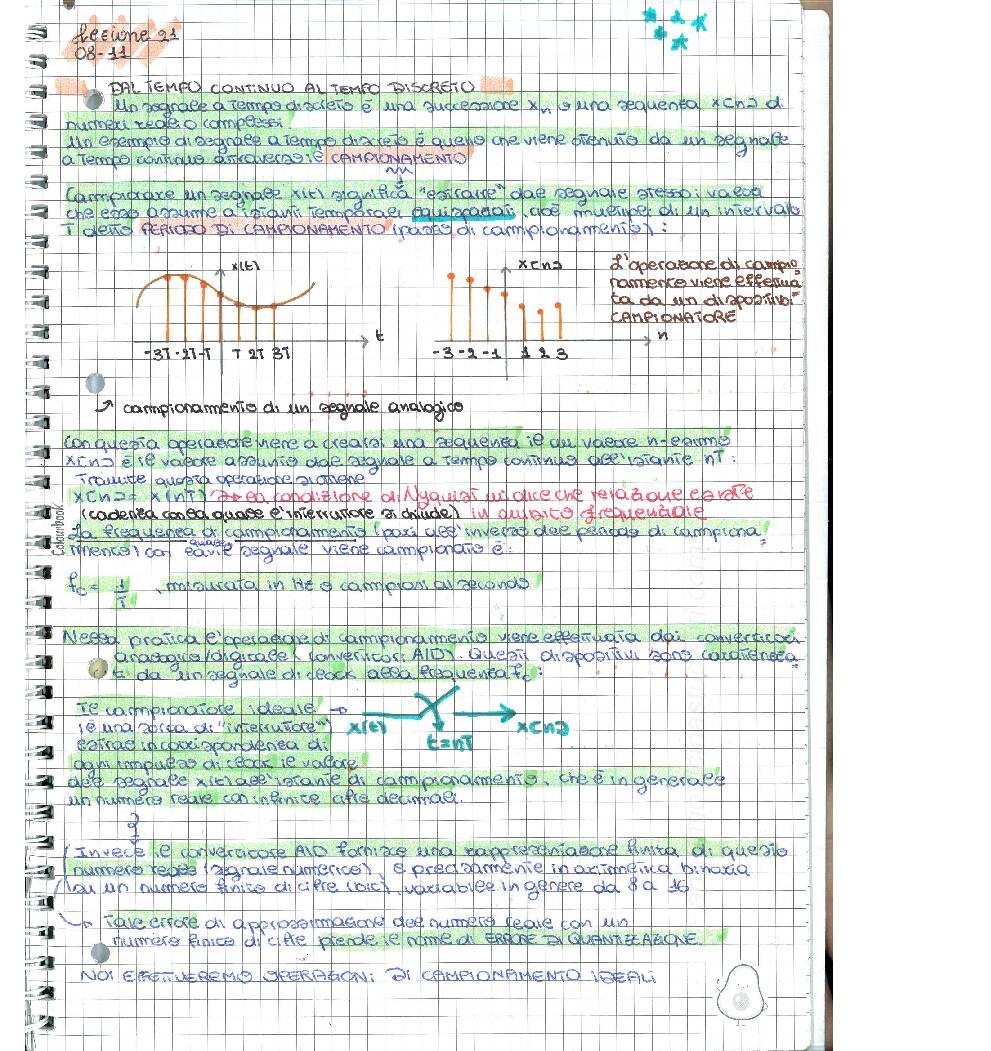 Lezione 21
08-11
DAL TEMPO CONTINUO AL TEMPO DISCRETO
Un segnale a tempo discreto è una successione xn o una sequenza x[n] di
numeri reali o complessi.
Un esempio di segnale a tempo discreto è quello che viene ottenuto da un segnale
a tempo continuo attraverso il CAMPIONAMENTO
Campionare un segnale x(t) significa "estrarre" dal segnale stesso i valori
che esso assume a istanti temporali equispaziati, cioè multipli di un intervallo
T detto PERIODO DI CAMPIONAMENTO (passo di campionamento):
x(t)
x[n]
L'operazione di campio
namento viene effettua
ta da un dispositivo:
CAMPIONATORE
t
n
-3T -2T -T T 2T 3T
-3 -2 -1 1 2 3
campionamento di un segnale analogico
Con questa operazione viene a crearsi una sequenza il cui valore n-esimo
x[n] è il valore assunto dal segnale a tempo continuo all'istante nT:
Tramite questa operazione si ottiene
x[n] = x(nT) la condizione di Nyquist mi dice che relazione esiste
(cadenza con la quale l'interruttore si chiude) in ambito frequenziale
La frequenza di campionamento (pari all'inverso del periodo di campiona
mento) con la quale il segnale viene campionato è:
fc = 1/T , misurata in Hz o campioni al secondo
Nella pratica l'operazione di campionamento viene effettuata dai convertitori
analogico/digitale (convertitori A/D). Questi dispositivi sono caratterizza
ti da un segnale di clock alla frequenza fc:
Il campionatore ideale →
(è una sorta di "interruttore")
estrae in corrispondenza di
ogni impulso di clock il valore
x(t)
t=nT
x[n]
del segnale x(t) all'istante di campionamento, che è in generale
un numero reale con infinite cifre decimali.
Invece il convertitore A/D fornisce una rappresentazione finita di questo
numero reale (segnale numerico), e precisamente in aritmetica binaria
su un numero finito di cifre (bit), variabile in genere da 8 a 16
Tale errore di approssimazione del numero reale con un
numero finito di cifre prende il nome di ERRORE DI QUANTIZZAZIONE.
NOI EFFETTUEREMO OPERAZIONI DI CAMPIONAMENTO IDEALI